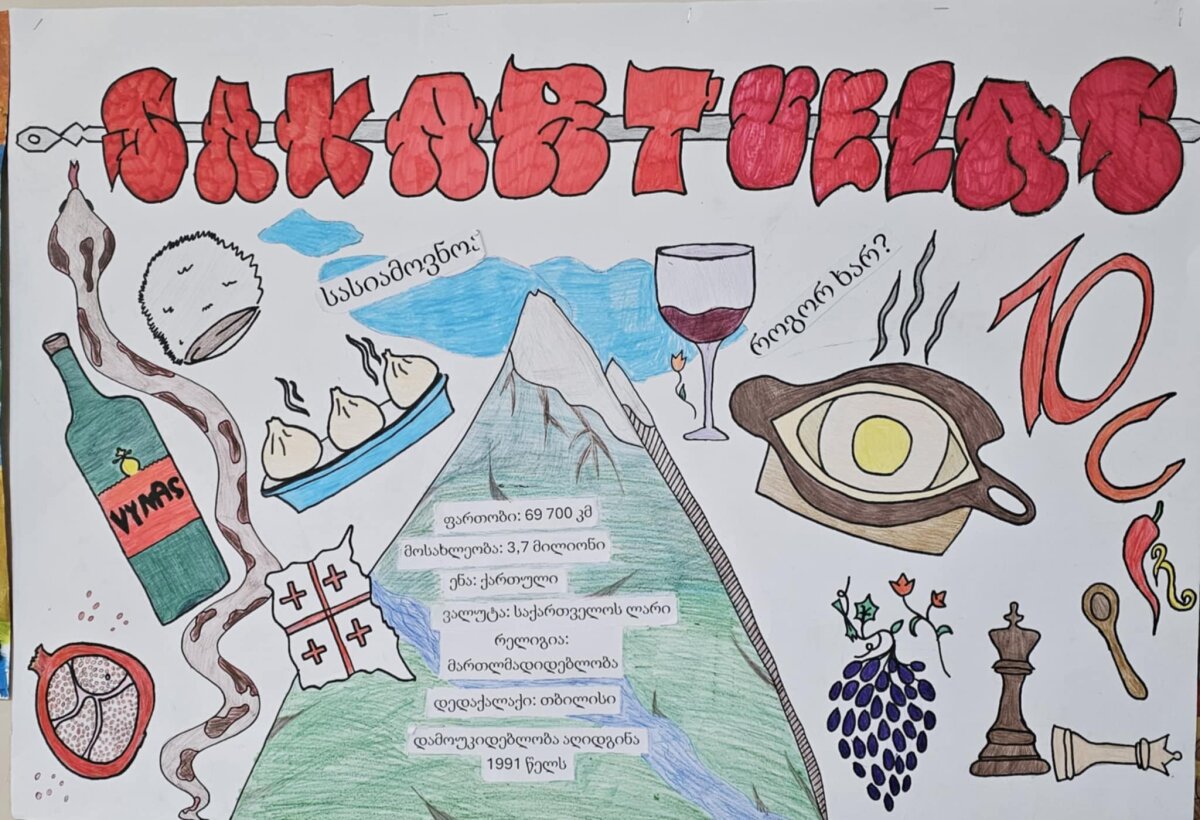 SAKARTVELAS
სასიამოვნოა
როგორ ხარ?
10 C
VYNAS
ფართობი: 69 700 კმ
მოსახლეობა: 3,7 მილიონი
ენა: ქართული
ვალუტა: საქართველოს ლარი
რელიგია:
მართლმადიდებლობა
დედაქალაქი: თბილისი
დამოუკიდებლობა აღიდგინა
1991 წელს